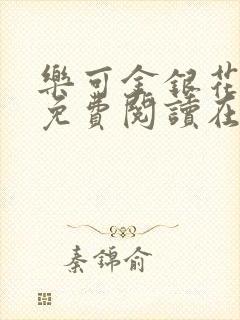 樂可金銀花
免費閱讀在
秦錦俞